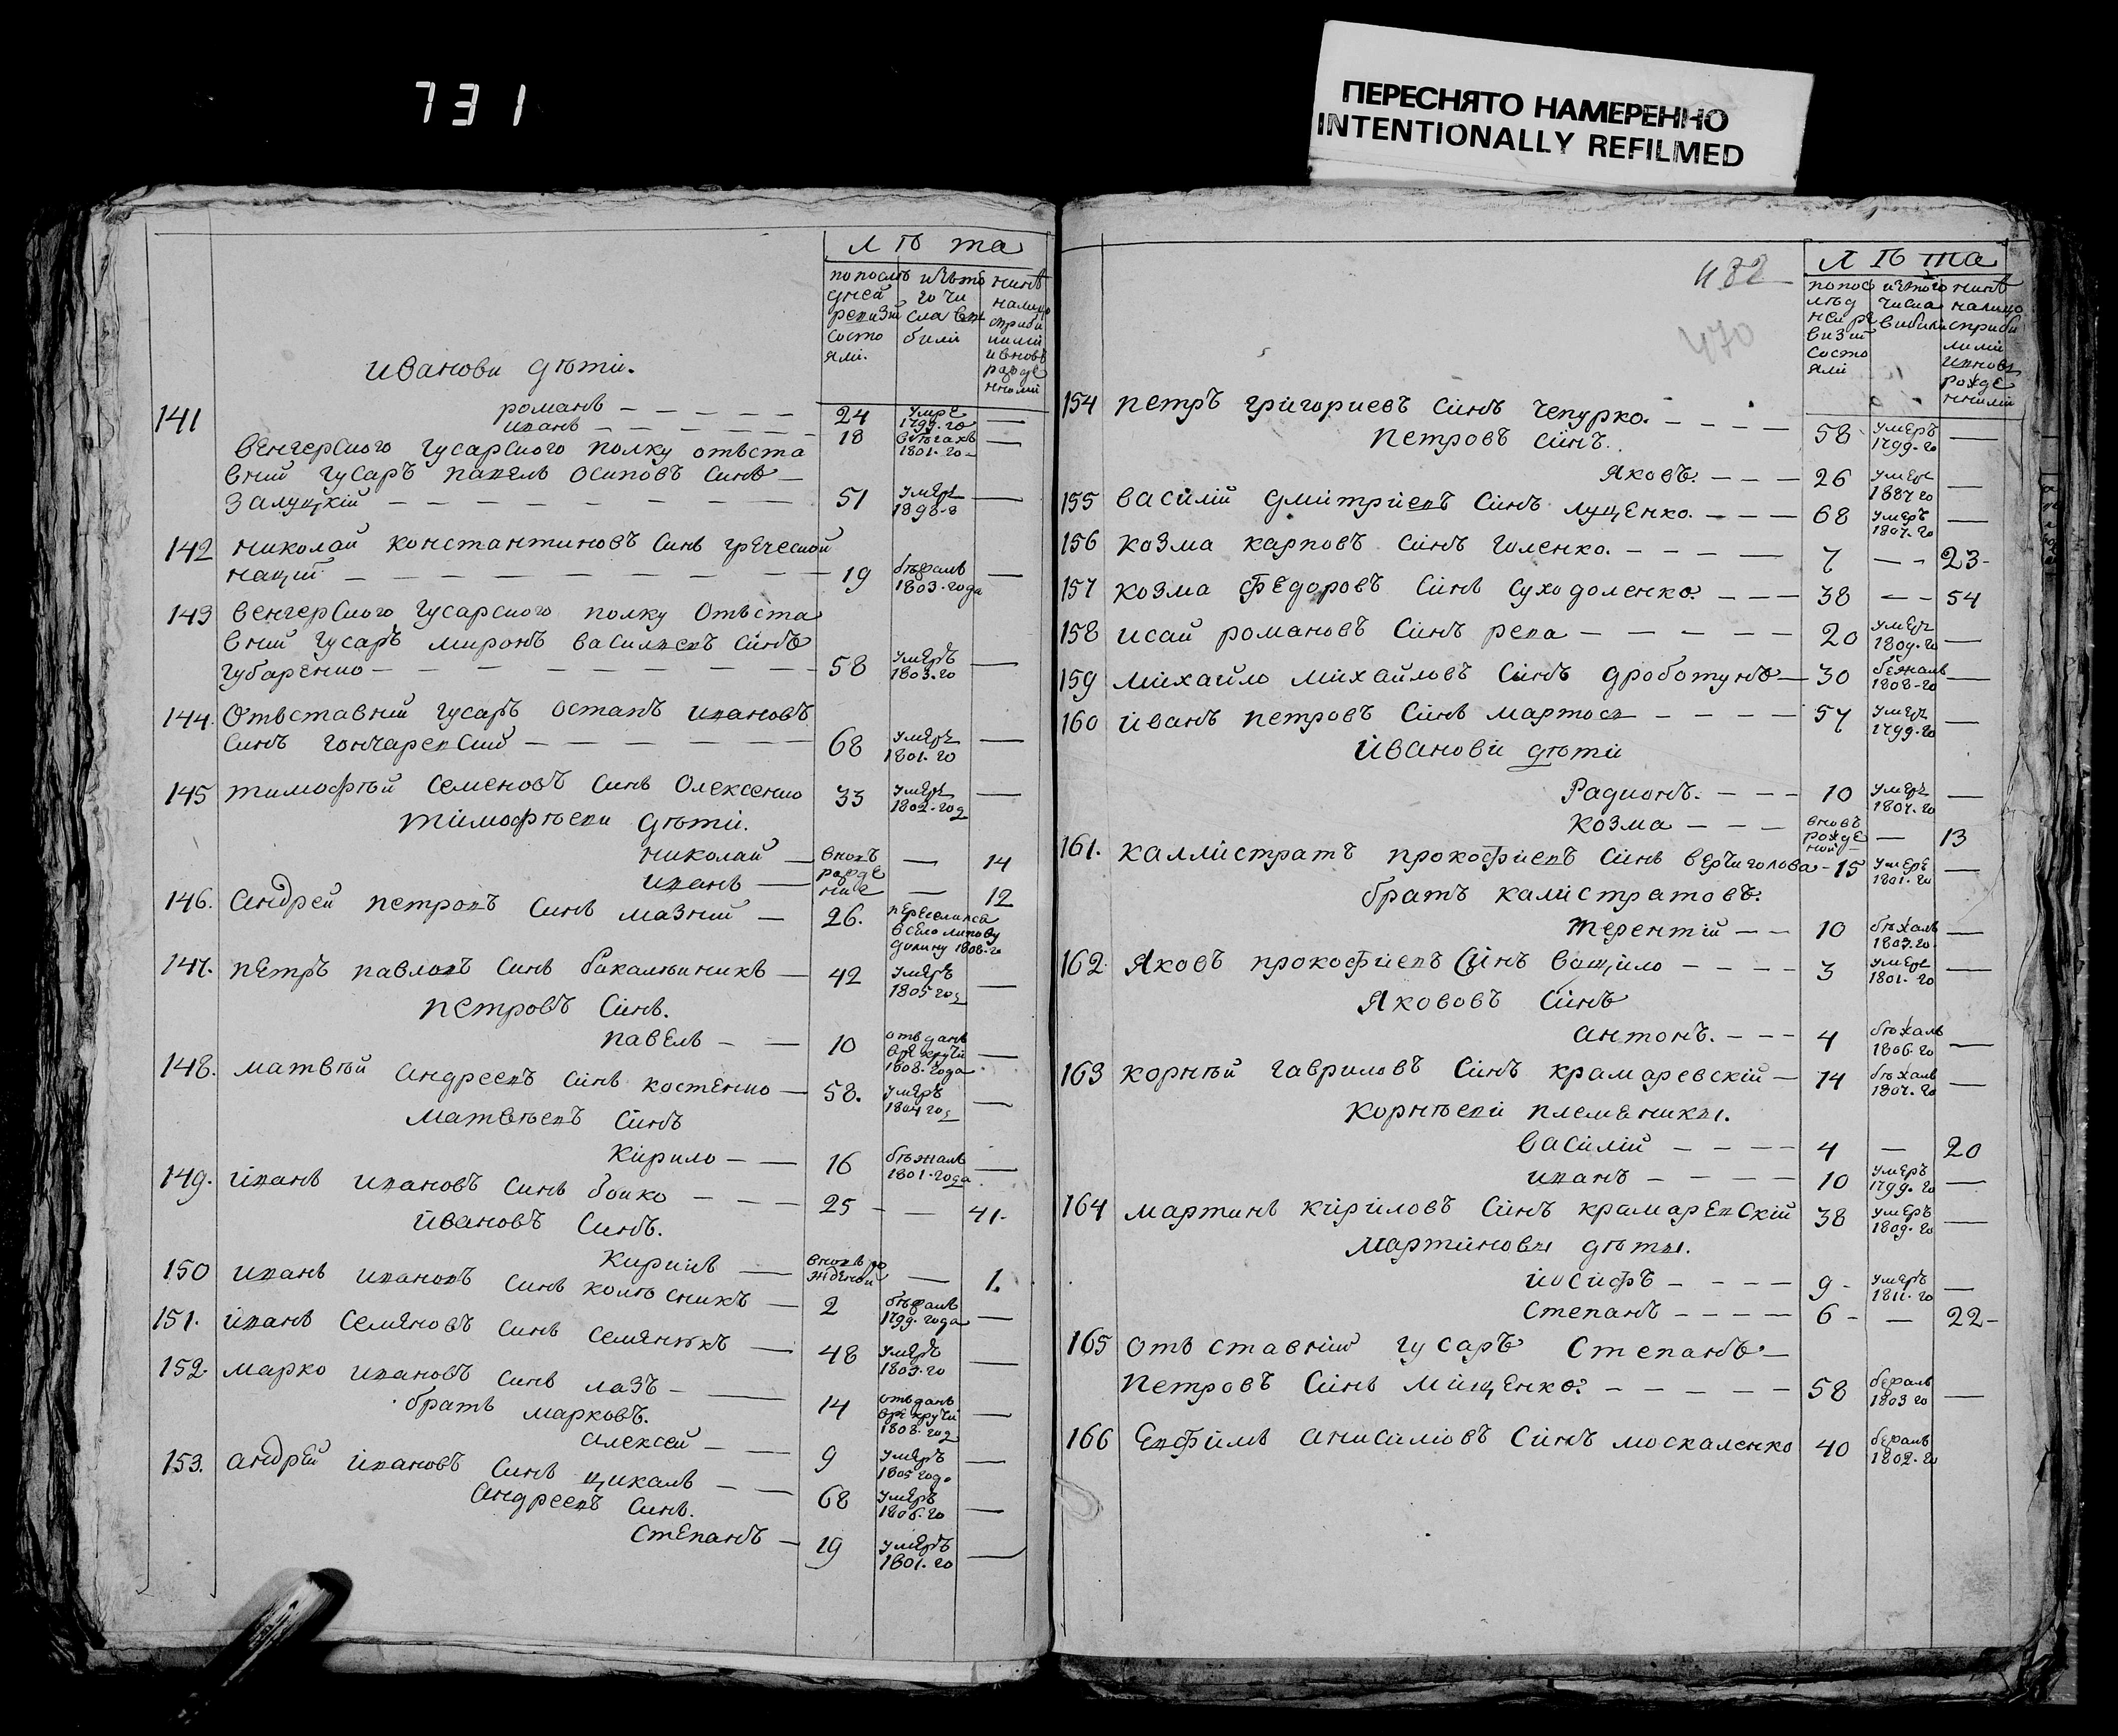 731
ПЕРЕСНЯТО НАМЕРЕННО
INTENTIONALLY REFILMED
лѣта
попослѣ изъто нинѣ
дней го чи налицо
ревизи сла вы сприби
состо били лими
яли. ивновъ
рожде
нними
Иванови дѣти.
141 романъ 24 умре 1799-го —
иванъ 18 вбѣгахъ 1801-го —
венгерского гусарского полку отъста
вний гусаръ павелъ осиповъ синъ
залуцкій 51 умеръ —
142 николай константиновъ синъ греческой
націй 19 бѣжалъ 1803-года —
143 венгерского гусарского полку отъста
вний гусаръ миронъ василиевъ синъ
губаренко 58 умеръ 1803-го —
144. Отъставний гусаръ остапъ ивановъ
синъ гончаревский 68 умеръ 1801-го —
145 тимофѣй семеновъ синъ Олексенко 33 умеръ 1802-год —
тимофѣеви дѣти.
николай — вновъ — 14
иванъ — рожде ние — 12
146. Андрей петровъ синъ мазний — 26. переселился
всело липову
долину 1808-го
147. петръ павловъ синъ бакалейникъ — 42 умеръ 1805 год —
петровъ синъ.
павелъ — 10 отъданъ
врекручи
1808-года —
148. матвѣй андреевъ синъ костенко — 58. умеръ 1804 год —
матвѣевъ синъ
кирило — 16 бѣжалъ 1801-года —
149. иванъ ивановъ синъ бойко — 25 — 41.
ивановъ синъ.
кирилъ — вновъ ро
жденой — 1.
150 иванъ ивановъ синъ колѣсникъ — 2 бѣжалъ 1799-года —
151. иванъ семеновъ синъ семянькъ — 48 умеръ 1803-го —
152. марко ивановъ синъ лазъ — 14 отъданъ
врекручи
1808-год —
братъ марковъ.
алексей — 9 умеръ 1805 года —
153. андрей ивановъ синъ цикалъ — 68 умеръ 1806-го —
андреевъ синъ.
степанъ — 19 умеръ 1801-го —
482
470
лѣта
попос изътого нинѣ
лѣд числа налицо
ней ре вибили сприби
визій лими
состо ивновъ
яли рожде
нними
154 петръ григориевъ синъ чепурко. 58 умеръ 1799-го —
петровъ синъ.
яковъ. 26 умеръ —
155 василий дмитриевъ синъ луценко. 68 умеръ 1807-го —
156 козма карповъ синъ голенко. 7 — 23
157 козма федоровъ синъ суходоленко. 38 — 54
158 исай романовъ синъ репа 20 умеръ 1809-го —
159 михайло михайловъ синъ дроботунъ 30 бежалъ 1808-го —
160 иванъ петровъ синъ мартосъ 57 умеръ 1799-го —
иванови дѣти
Радионъ. 10 умеръ 1807-го —
козма вновъ
рожде
ной — 13
161. каллистратъ прокофиевъ синъ верниголова 15 умеръ 1801-го —
братъ калистратовъ.
терентій 10 бѣжалъ 1807.го —
162. Яковъ прокофиевъ синъ ващило 3 умеръ 1801-го —
Якововъ синъ
антонъ. 4 бѣжалъ 1806-го —
163 корнѣй гавриловъ синъ крамаревскій 14 бѣжалъ 1807-го —
корнѣеви племеники.
василій 4 — 20
иванъ 10 умеръ 1799-го —
164 мартинъ кириловъ синъ крамаревский 38 умеръ 1809-го —
мартиновы дѣты.
иосифъ 9 умеръ 1811-го —
степанъ 6 — 22
165 отъставний гусаръ Степанъ
петровъ синъ мищенко. 58 бежалъ 1803 го —
166 Евфимъ анисимовъ синъ москаленко 40 бежалъ 1802-го